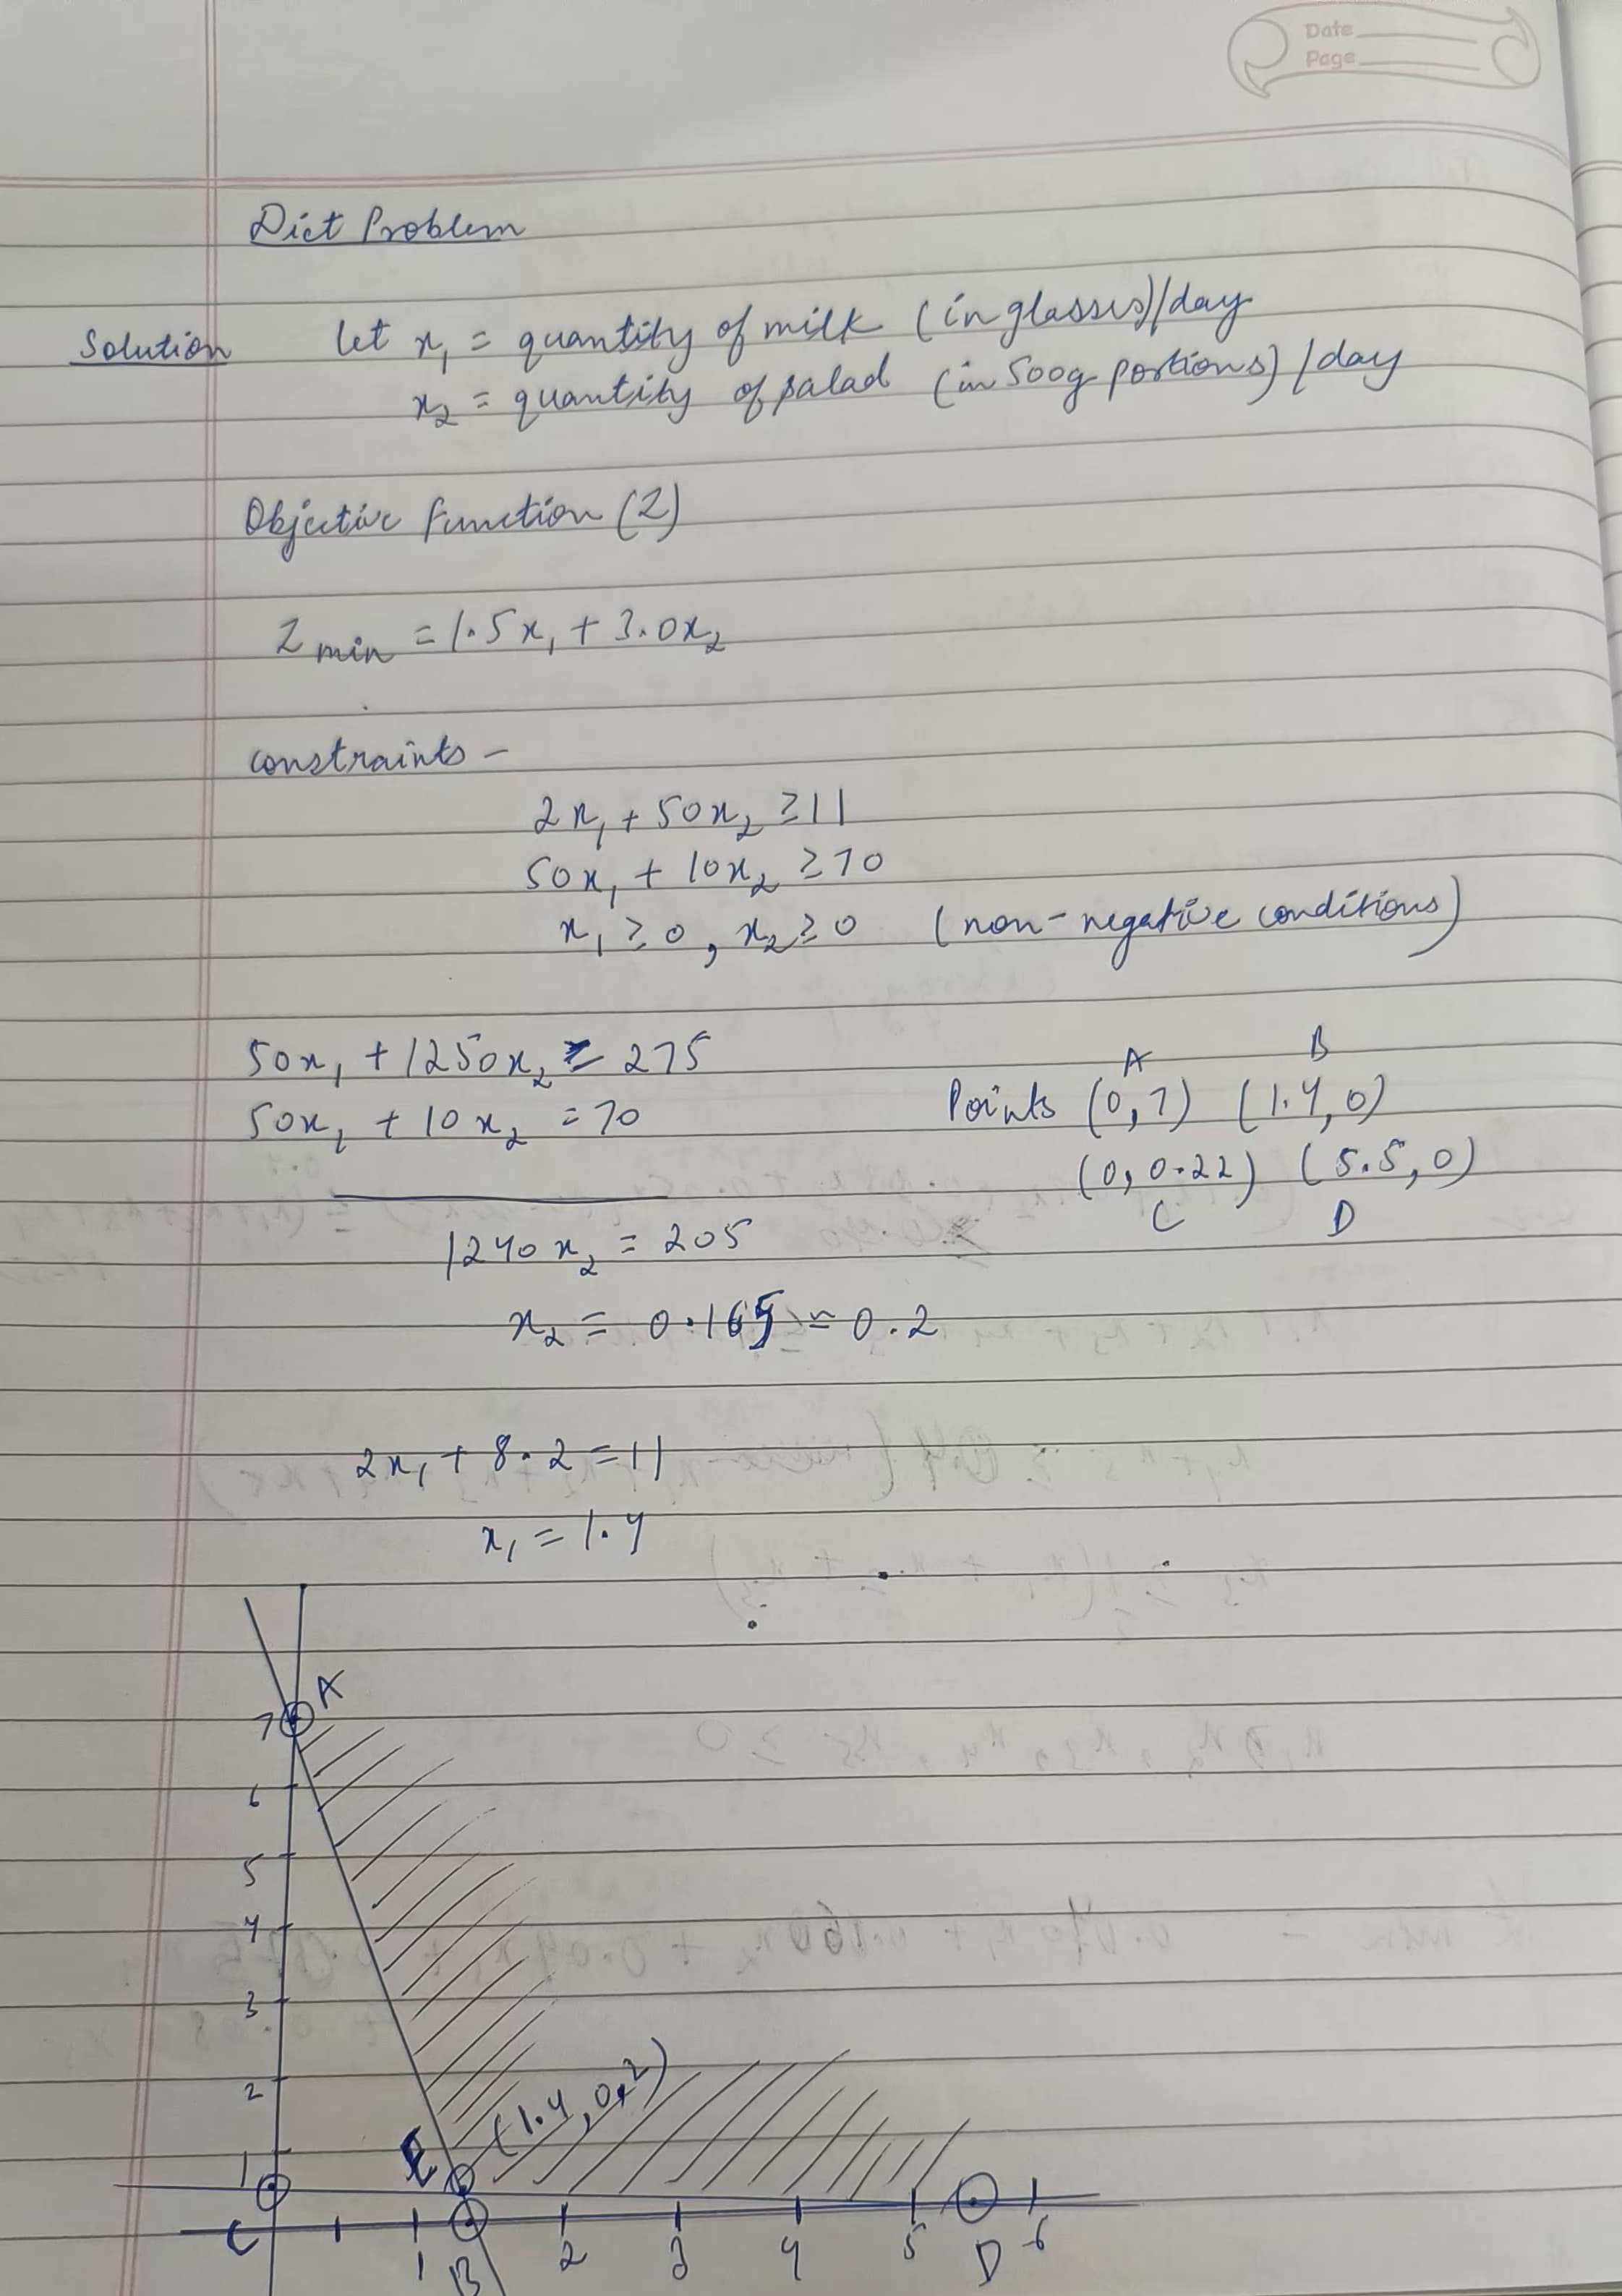 Date
Page
Diet Problem
Solution let x₁ = quantity of milk (in glasses)/day
x₂ = quantity of salad (in 500g portions)/day
Objective function (Z)
Z min = 1.5x₁ + 3.0x₂
constraints -
2x₁ + 50x₂ ≥ 11
50x₁ + 10x₂ ≥ 70
x₁ ≥ 0, x₂ ≥ 0 (non-negative conditions)
50x₁ + 1250x₂ = 275
A B
50x₁ + 10x₂ = 70 Points (0,7) (1.4,0)
(0,0.22) (5.5,0)
C D
1240x₂ = 205
x₂ = 0.165 ≃ 0.2
2x₁ + 8.2 = 11
x₁ = 1.4
A
7
6
5
4
3
2
(1.4,0.2)
1 E
C
1 B 2 3 4 5 D 6